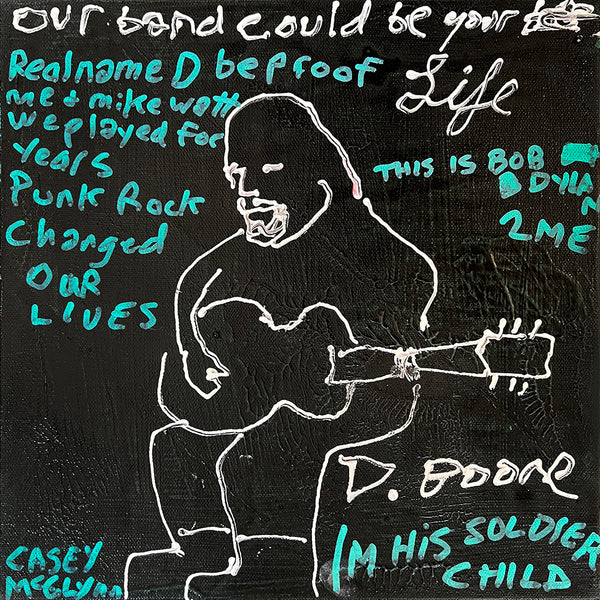 OUR band could be your
Life
Realname D be proof
me + mike watt
we played for
years
Punk Rock
Changed
OUR
LIVES
THIS IS BOB
DYLAN
2ME
D. BOONE
I'M HIS SOLDIER
CHILD
CASEY
McGLYNN